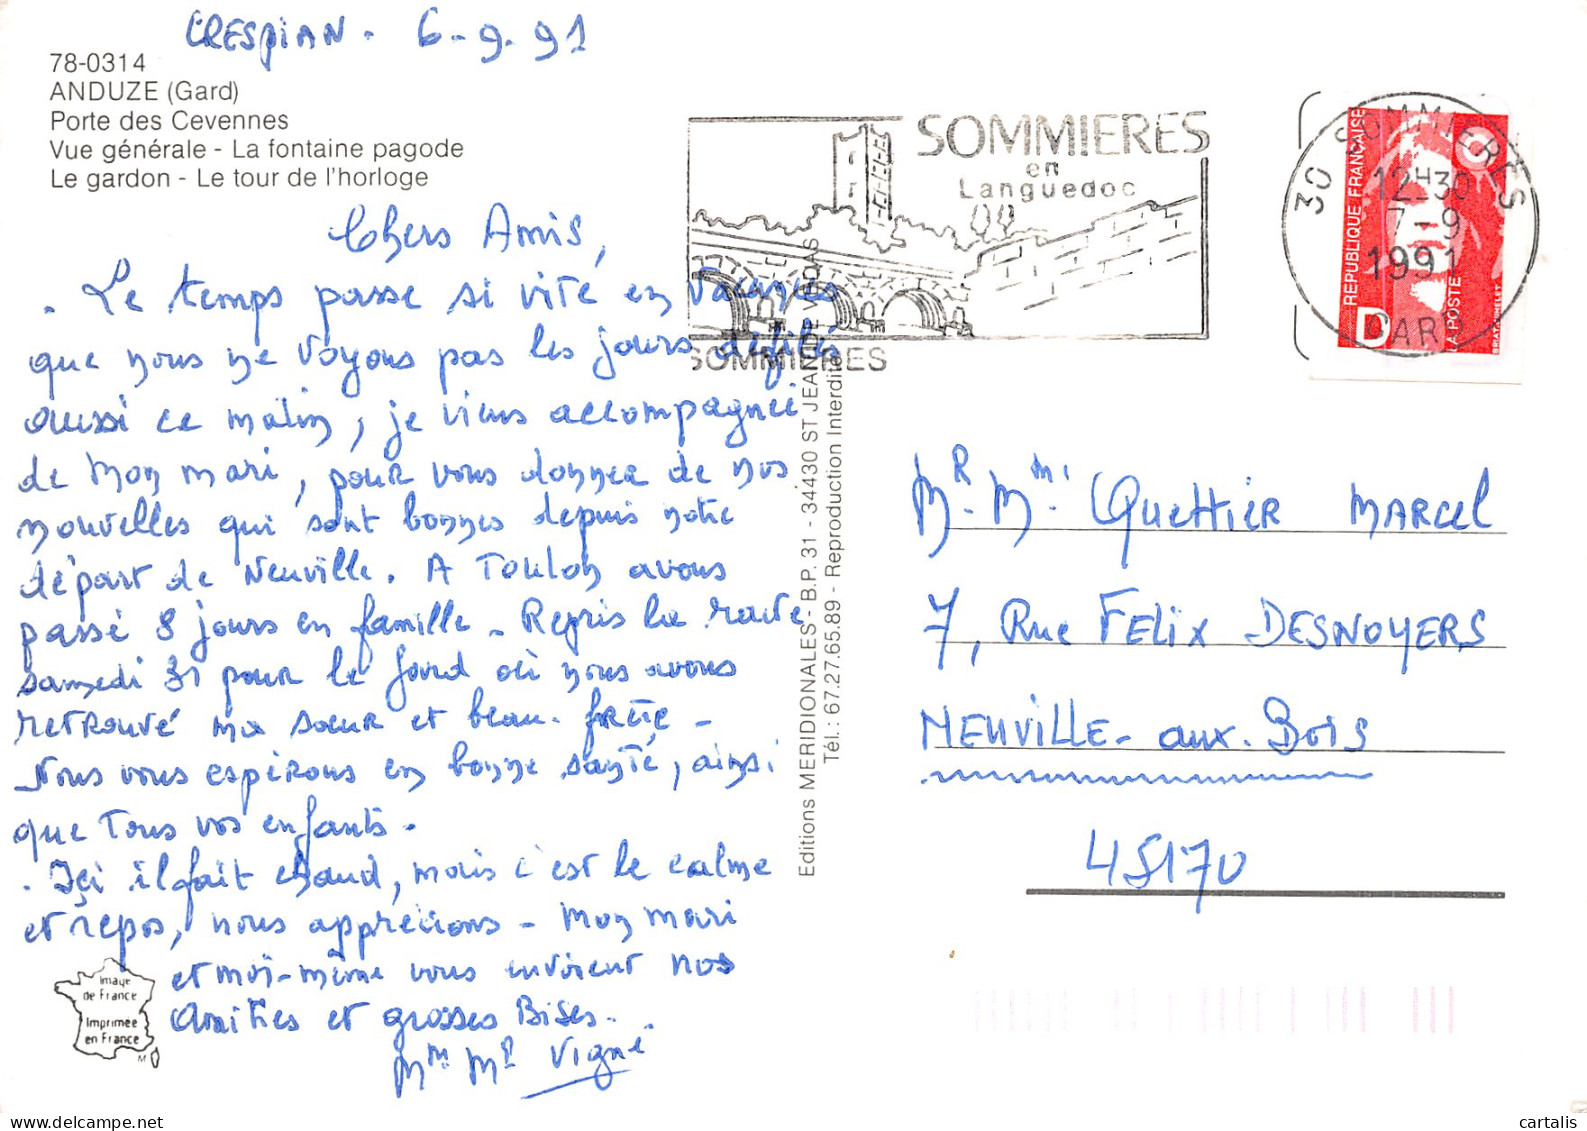 CRESPIAN - 6-9-91
78-0314
ANDUZE (Gard)
Porte des Cevennes
Vue générale - La fontaine pagode
Le gardon - Le tour de l'horloge
Chers Amis,
. Le temps passe si vite en vacances
que nous ne voyons pas les jours défilés
aussi ce matin, je viens accompagnée
de mon mari, pour vous donner de nos
nouvelles qui sont bonnes depuis notre
départ de Neuville. A Toulon avons
passé 8 jours en famille - Repris la route
samedi 31 pour le Gard où nous avons
retrouvé ma soeur et beau-frère -
Nous vous espérons en bonne santé, ainsi
que tous vos enfants.
. Içi il fait chaud, mais c'est le calme
et repos, nous apprécions - Mon mari
et moi-même vous envoient nos
Amitiés et grosses Bises.
Mm Mr Vigné
Image
de France
Imprimée
en France
M
Editions MERIDIONALES - B.P. 31 - 34430 ST JEAN DE VEDAS
Tél. : 67.27.65.89 - Reproduction Interdite
SOMMIERES
en
Languedoc
SOMMIERES
30 SOMMIERES
12H30
7-9
1991
GARD
REPUBLIQUE FRANÇAISE
D
LA POSTE
BRIAT-JUMELET
Mr. Mm. Quettier MARCEL
7, Rue FELIX DESNOYERS
NEUVILLE-aux-Bois
45170
cartalis